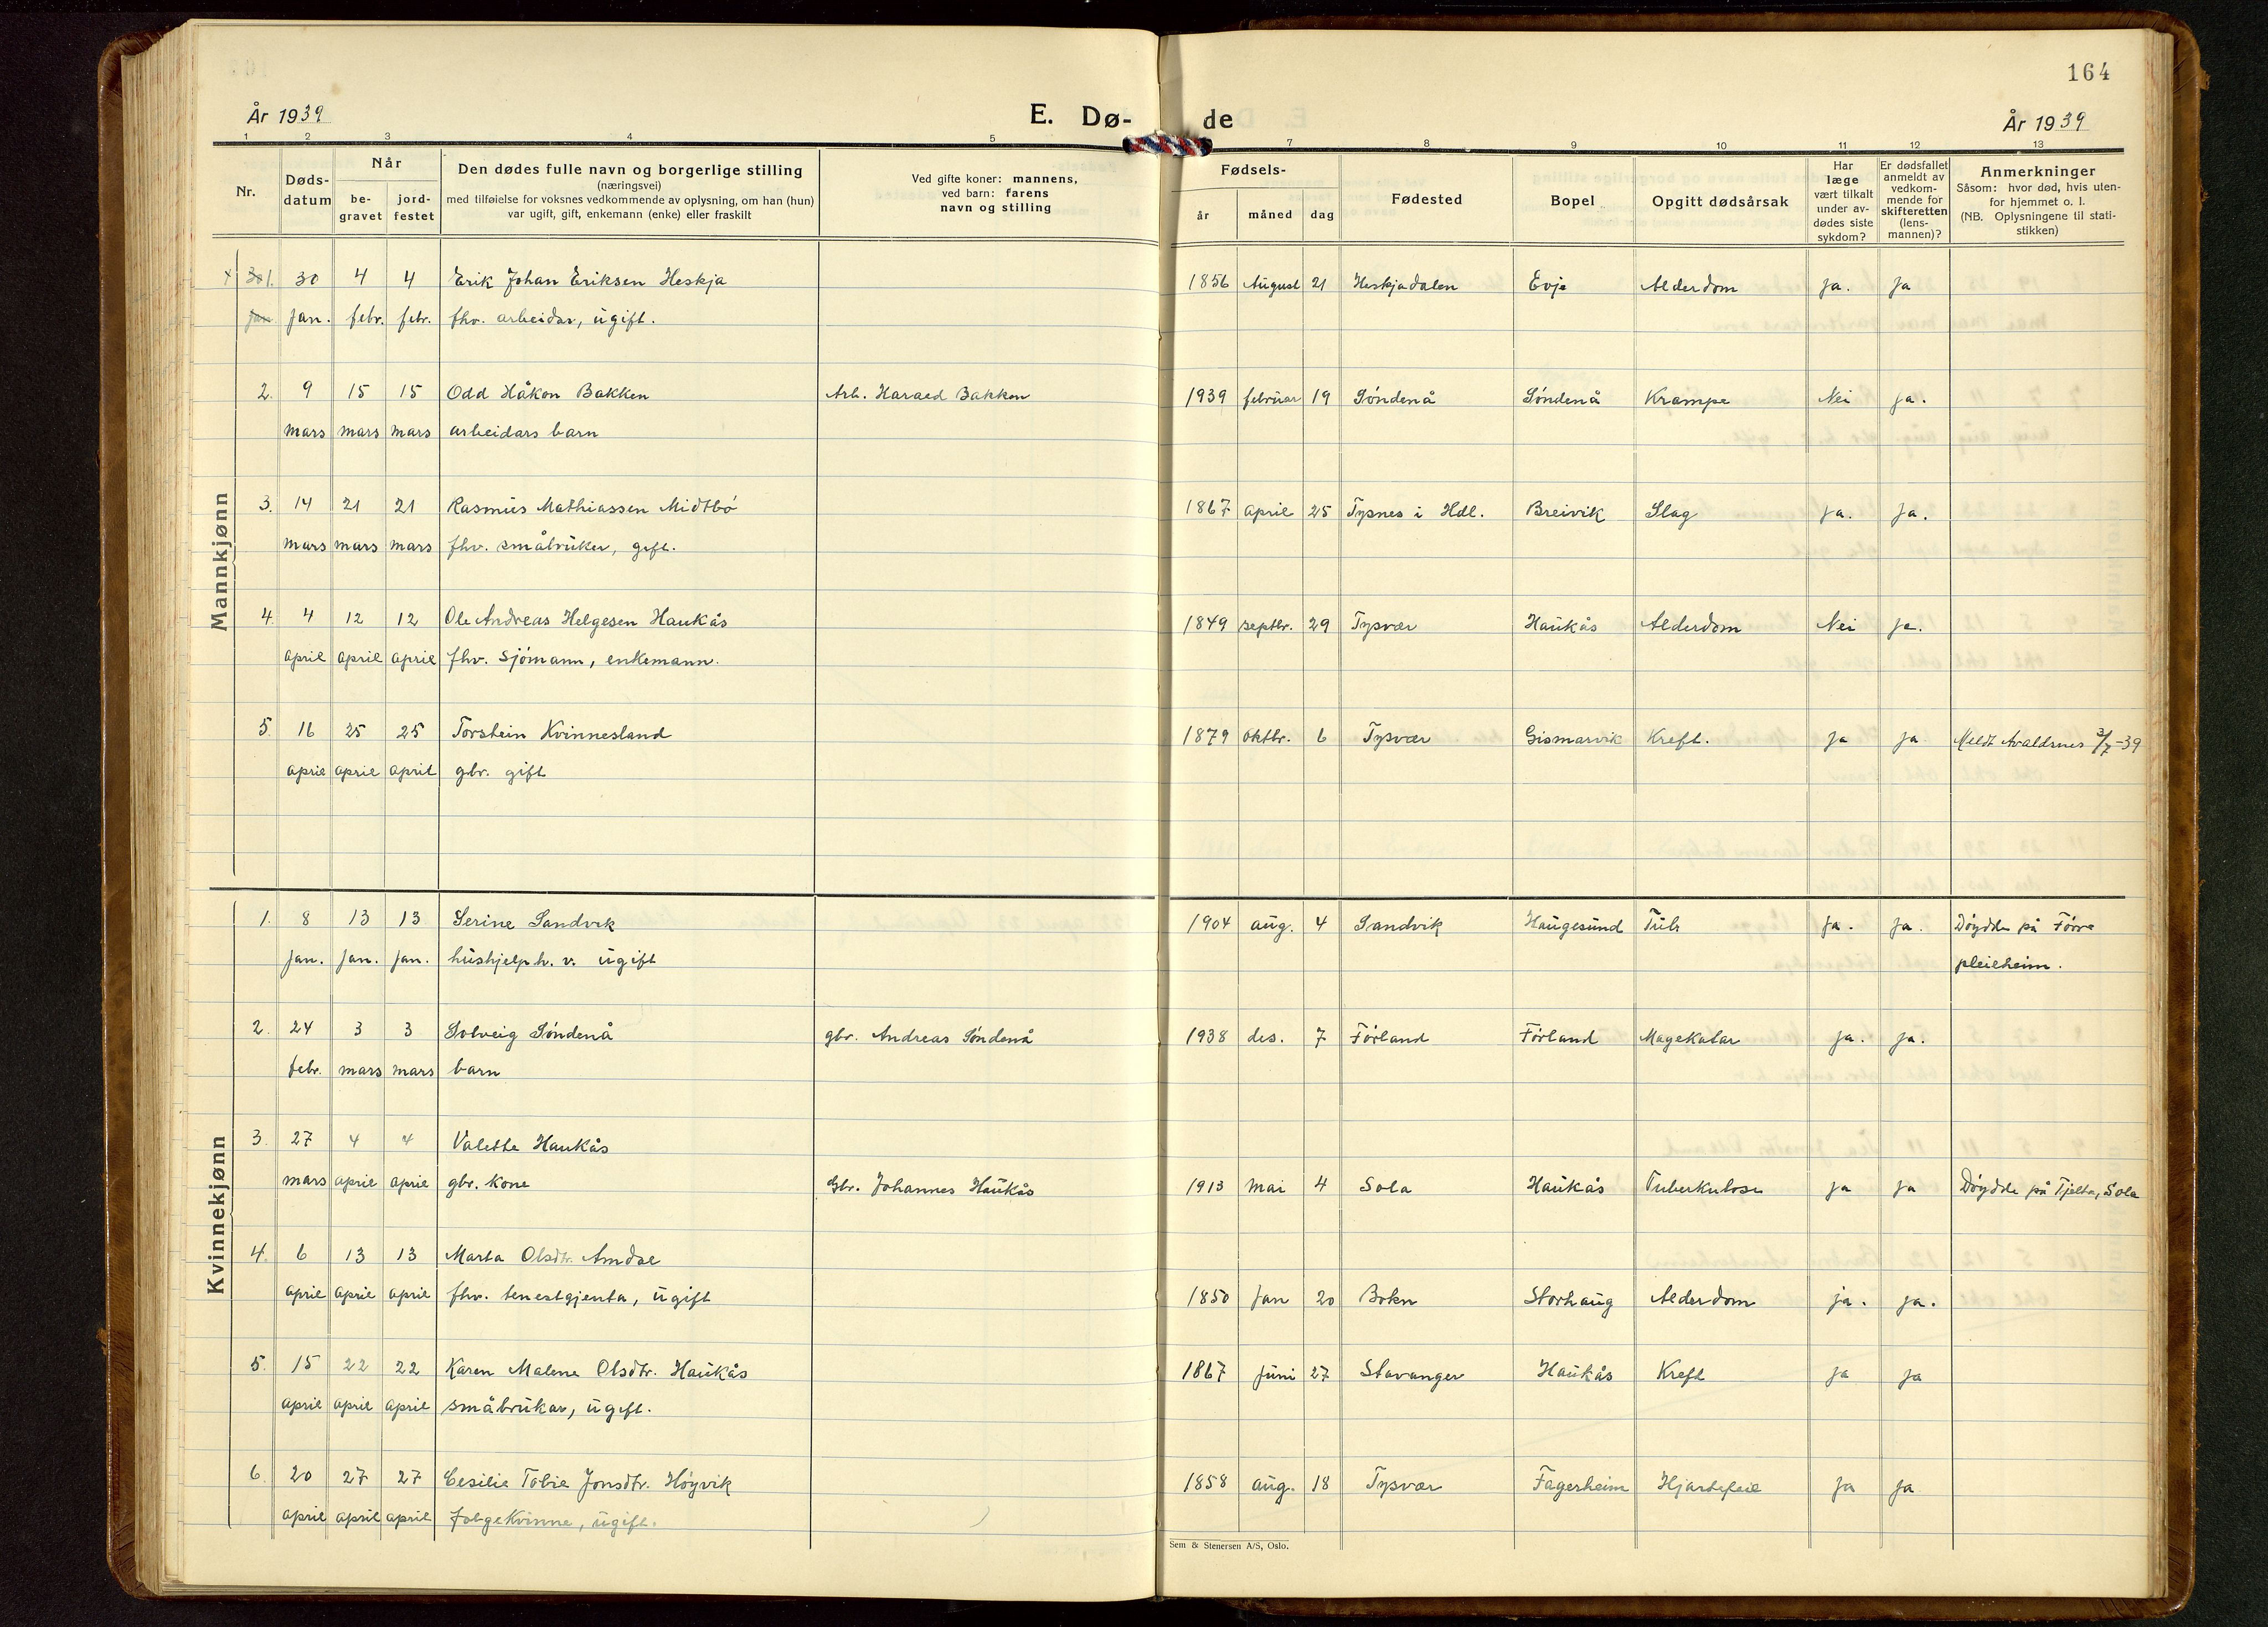 164
År 1939
E. Dø-
de
År 1939
1 2 3 4 5 7 8 9 10 11 12 13
Nr.
Døds-
datum
Når
be-
gravet
jord-
festet
Den dødes fulle navn og borgerlige stilling
(næringsvei)
med tilføielse for voksnes vedkommende av oplysning, om han (hun)
var ugift, gift, enkemann (enke) eller fraskilt
Ved gifte koner: mannens,
ved barn: farens
navn og stilling
Fødsels-
år måned dag
Fødested
Bopel
Opgitt dødsårsak
Har
læge
vært tilkalt
under av-
dødes siste
sykdom?
Er dødsfallet
anmeldt av
vedkom-
mende for
skifteretten
(lens-
mannen)?
Anmerkninger
Såsom: hvor død, hvis uten-
for hjemmet o. l.
(NB. Oplysningene til stati-
stikken)
Mannkjønn
1. 30 4 4 Erik Johan Eriksen Heskja 1856 August 21 Heskjadalen Evje Alderdom Ja. Ja
jan jan. febr. febr. fhv. arbeidar, ugift.
2. 9 15 15 Odd Håkon Bakken Arb. Harald Bakken 1939 februar 19 Söndenå Söndenå Krampe Nei Ja.
mars mars mars arbeidars barn
3. 14 21 21 Rasmus Mathiassen Midtbö 1867 april 25 Tysnes i Hdl. Breivik Slag Ja. Ja.
mars mars mars fhv. småbruker, gift.
4. 4 12 12 Ole Andreas Helgesen Haukås 1849 septbr. 29 Tysvær Haukås Alderdom Nei Ja.
april april april fhv. sjömann, enkemann.
5. 16 25 25 Torstein Kvinnesland 1879 oktbr. 6 Tysvær Gismarvik Kreft. Ja Ja Meldt Avaldsnes 3/7-39
april april april gbr. gift
Kvinnekjønn
1. 8 13 13 Serine Sandvik 1904 aug. 4 Sandvik Haugesund Tub. Ja. Ja. Döydde på Förre
jan. jan. jan. hushjelp h. v. ugift pleieheim.
2. 24 3 3 Solveig Söndenå gbr. Andreas Söndenå 1938 des. 7 Förland Förland Magekatar Ja. Ja.
febr. mars mars barn
3. 27 4 4 Valette Haukås
mars april april gbr. kone Gbr. Johannes Haukås 1913 mai 4 Sola Haukås Tuberkulose Ja Ja Döydde på Tjelta, Sola
4. 6 13 13 Marta Olsdtr. Amdal
april april april fhv. tenestgjenta, ugift 1850 Jan 20 Bokn Storhaug Alderdom ja. Ja.
5. 15 22 22 Karen Malene Olsdtr. Haukås 1867 Juni 27 Stavanger Haukås Kreft Ja Ja
april april april småbrukar, ugift.
6. 20 27 27 Cesilie Tobie Jonsdtr. Höyvik 1858 aug. 18 Tysvær Fagerheim Hjartefeil Ja Ja
april april april folgekvinne, ugift.
Sem & Stenersen A/S, Oslo.